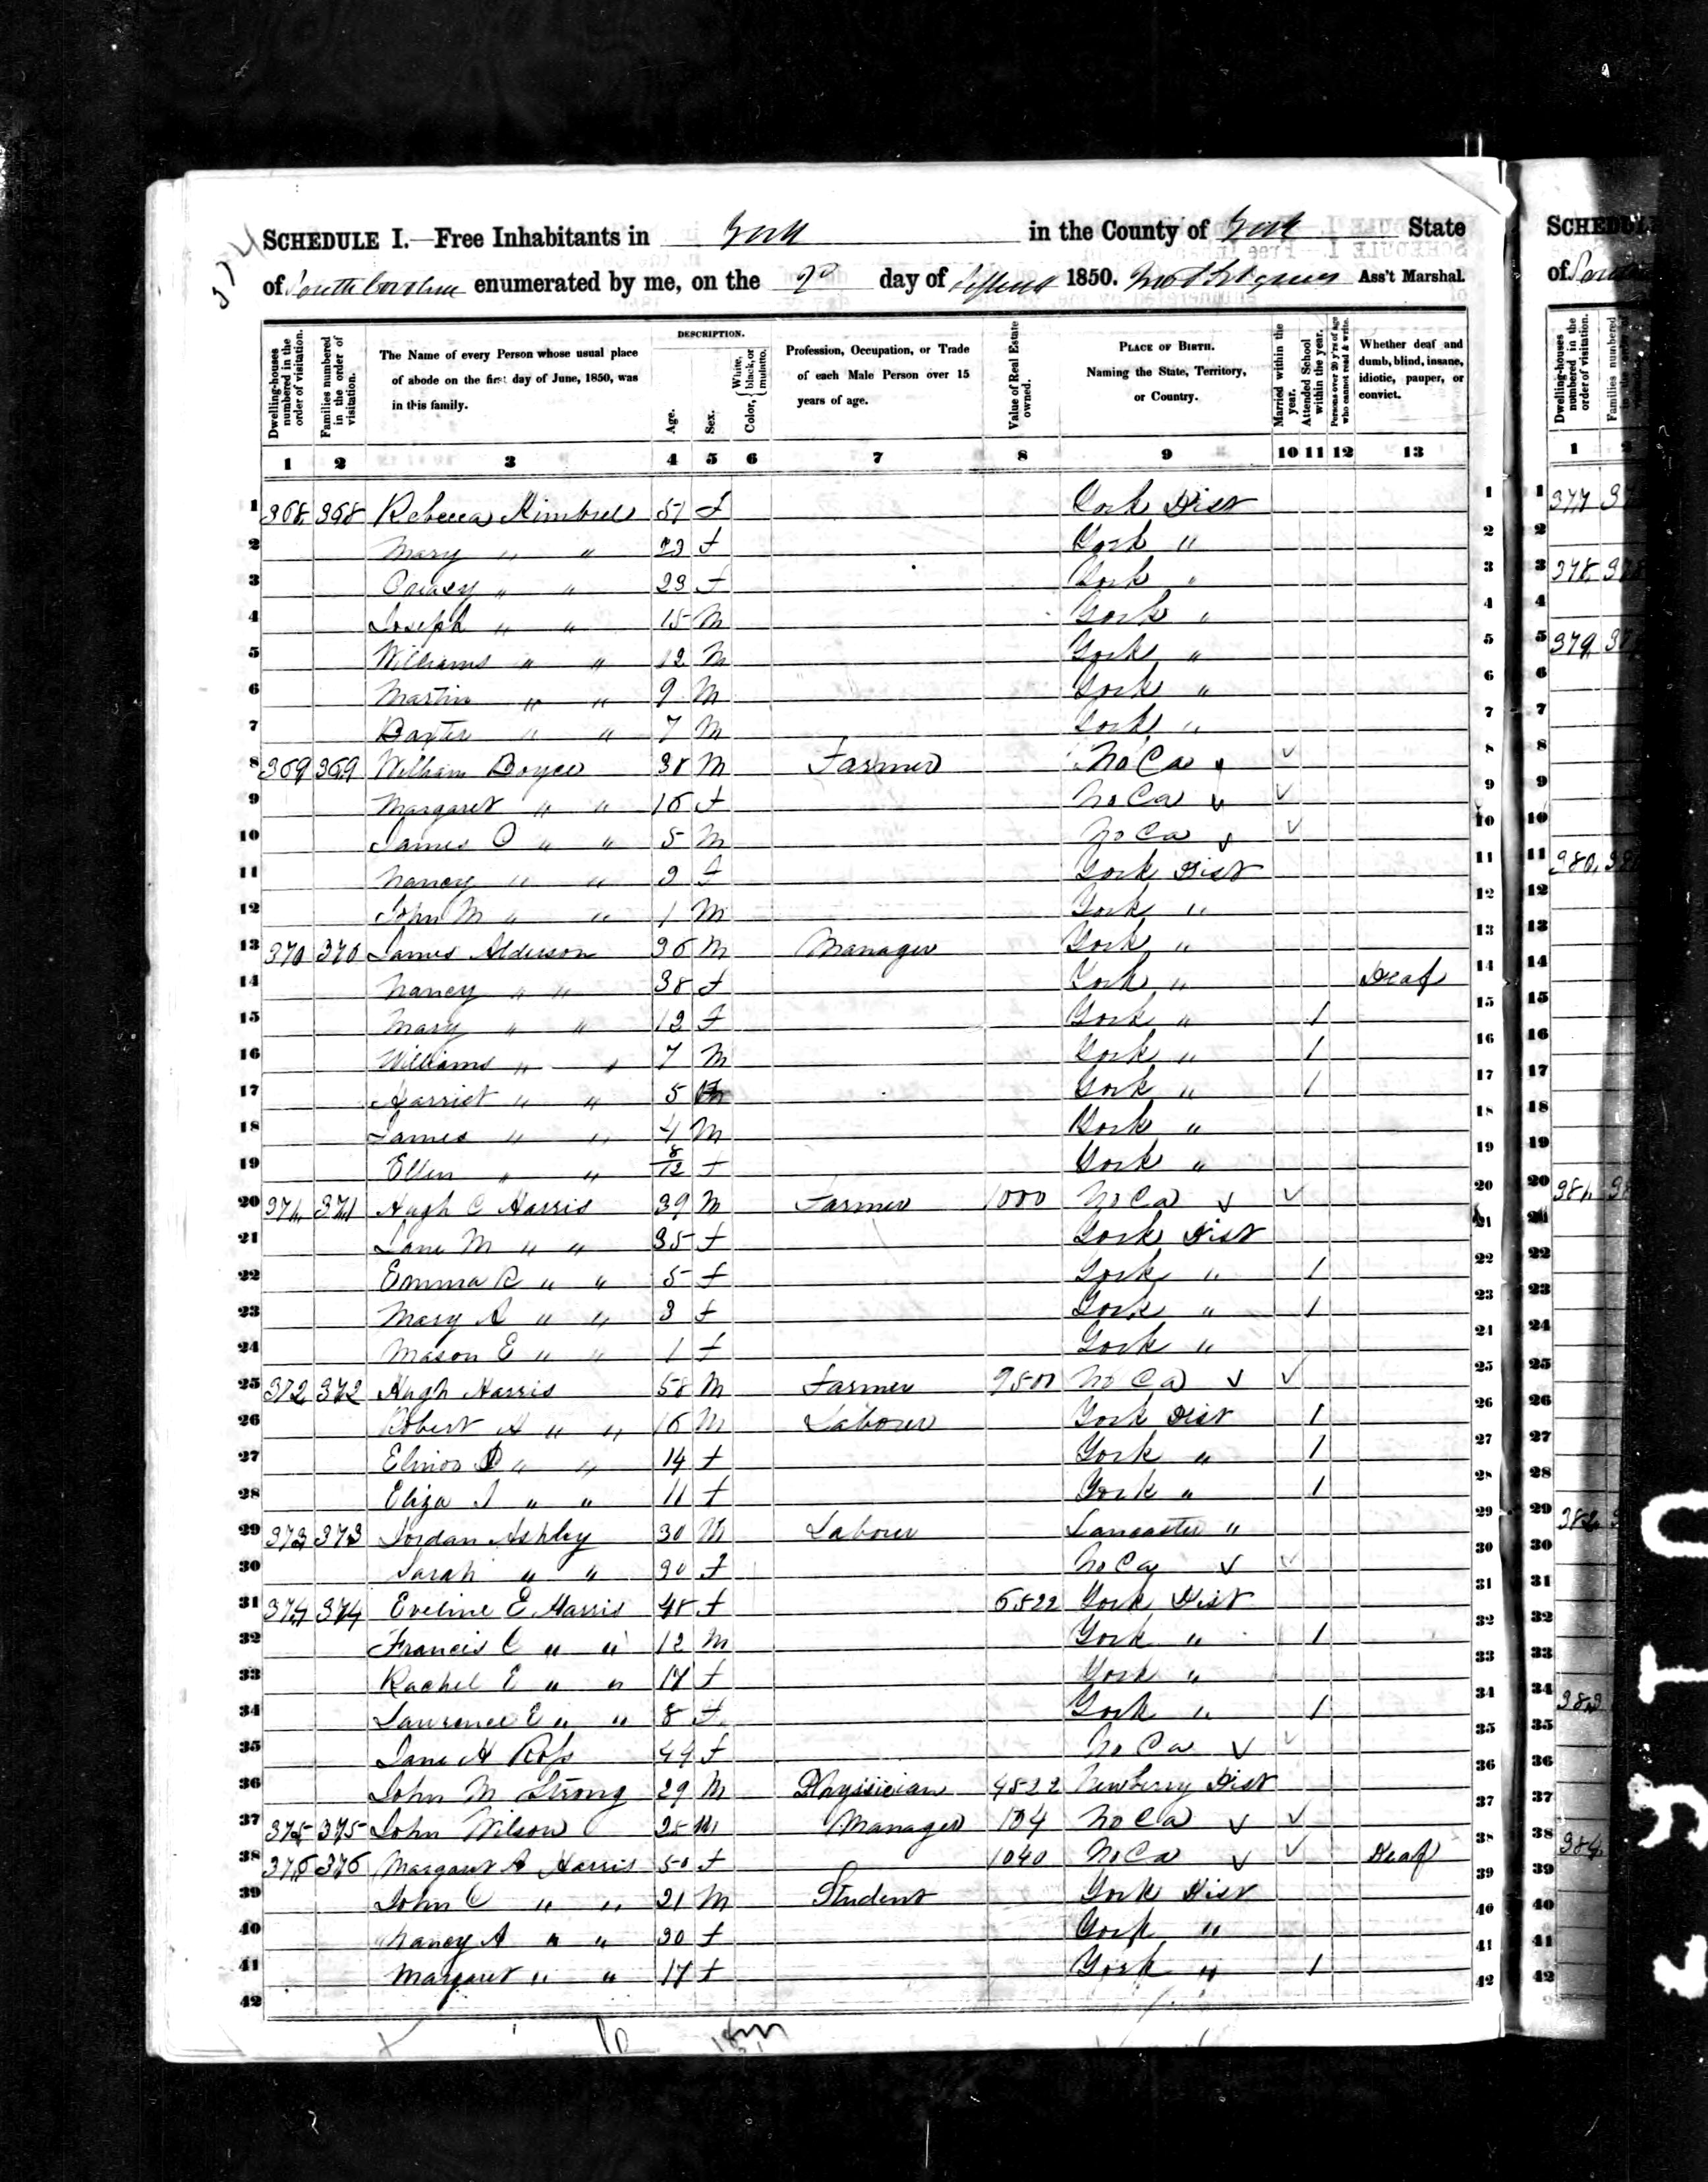 SCHEDULE I.—Free Inhabitants in York in the County of York State
of South Carolina enumerated by me, on the day of 1850. Ass't Marshal.
Dwelling-houses numbered in the order of visitation.
Families numbered in the order of visitation.
The Name of every Person whose usual place of abode on the first day of June, 1850, was in this family.
DESCRIPTION.
Age.
Sex.
Color, { White, black, or mulatto.
Profession, Occupation, or Trade of each Male Person over 15 years of age.
Value of Real Estate owned.
PLACE OF BIRTH. Naming the State, Territory, or Country.
Married within the year.
Attended School within the year.
Persons over 20 y'rs of age who cannot read & write.
Whether deaf and dumb, blind, insane, idiotic, pauper, or convict.
1 2 3 4 5 6 7 8 9 10 11 12 13
1 368 368 Rebecca Kimbrel 51 f York Dist 1
2 Mary " " 23 f York " 2
3 " " 23 f York " 3
4 Joseph " " 15 M York " 4
5 Williams " " 12 M York " 5
6 Martin " " 9 M York " 6
7 Baxter " " 7 M York " 7
8 369 369 William Boyce 38 M Farmer No Ca ✓ ✓ 8
9 Margaret " " 16 f No Ca ✓ ✓ 9
10 James C " " 5 M No Ca ✓ ✓ 10
11 Nancy " " 3 f York Dist 11
12 John M " " 1 M York " 12
13 370 370 James Alderson 36 M Manager York " 13
14 Nancy " " 38 f York " Deaf 14
15 Mary " " 12 f York " 1 15
16 Williams " " 7 M York " 1 16
17 Harriet " " 5 York " 1 17
18 James " " 4 M York " 18
19 Ellen " " 8/12 f York " 19
20 371 371 Hugh C Harris 39 M Farmer 1000 No Ca ✓ ✓ 20
21 Jane M " " 35 f York Dist 21
22 Emma R " " 5 f York " 1 22
23 Mary A " " 3 f York " 1 23
24 Mason E " " 1 f York " 24
25 372 372 Hugh Harris 58 M Farmer No Ca ✓ ✓ 25
26 Robert A " " 16 M Labourer York Dist 1 26
27 Elinor D " " 14 f York " 1 27
28 Eliza J " " 11 f York " 1 28
29 373 373 Jordan Ashley 30 M Labourer Lancaster " 29
30 Sarah " " 30 f No Ca ✓ ✓ 30
31 374 374 Eveline E Harris 48 f 6522 York Dist 31
32 Francis C " " 12 M York " 1 32
33 Rachel E " " 17 f York " 33
34 Lawrence E " " 8 f York " 1 34
35 Jane H Ross 44 f No Ca ✓ ✓ 35
36 John M Strong 29 M Physician 4522 Newberry Dist 36
37 375 375 John Wilson 25 M Manager 104 No Ca ✓ ✓ 37
38 376 376 Margaret A Harris 50 f 1040 No Ca ✓ ✓ Deaf 38
39 John C " " 21 M Student York Dist 39
40 Nancy A " " 30 f York " 40
41 Margaret " " 17 f York " 1 41
42 42
SCHEDUL
of
Dwelling-houses numbered in the order of visitation.
Families numbered
1 2
1 377
3 378
5 379
11 380
20 381
29 382
34 383
38 384